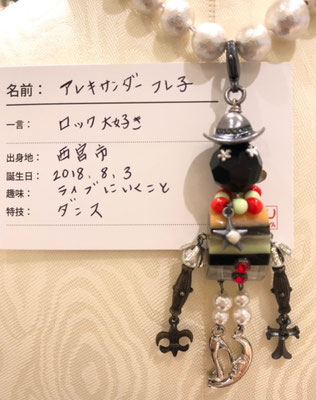 名前： アレキサンダー フレ子
一言： ロック大好き
出身地： 西宮市
誕生日： 2018.8.3
趣味： ライブにいくこと
特技： ダンス